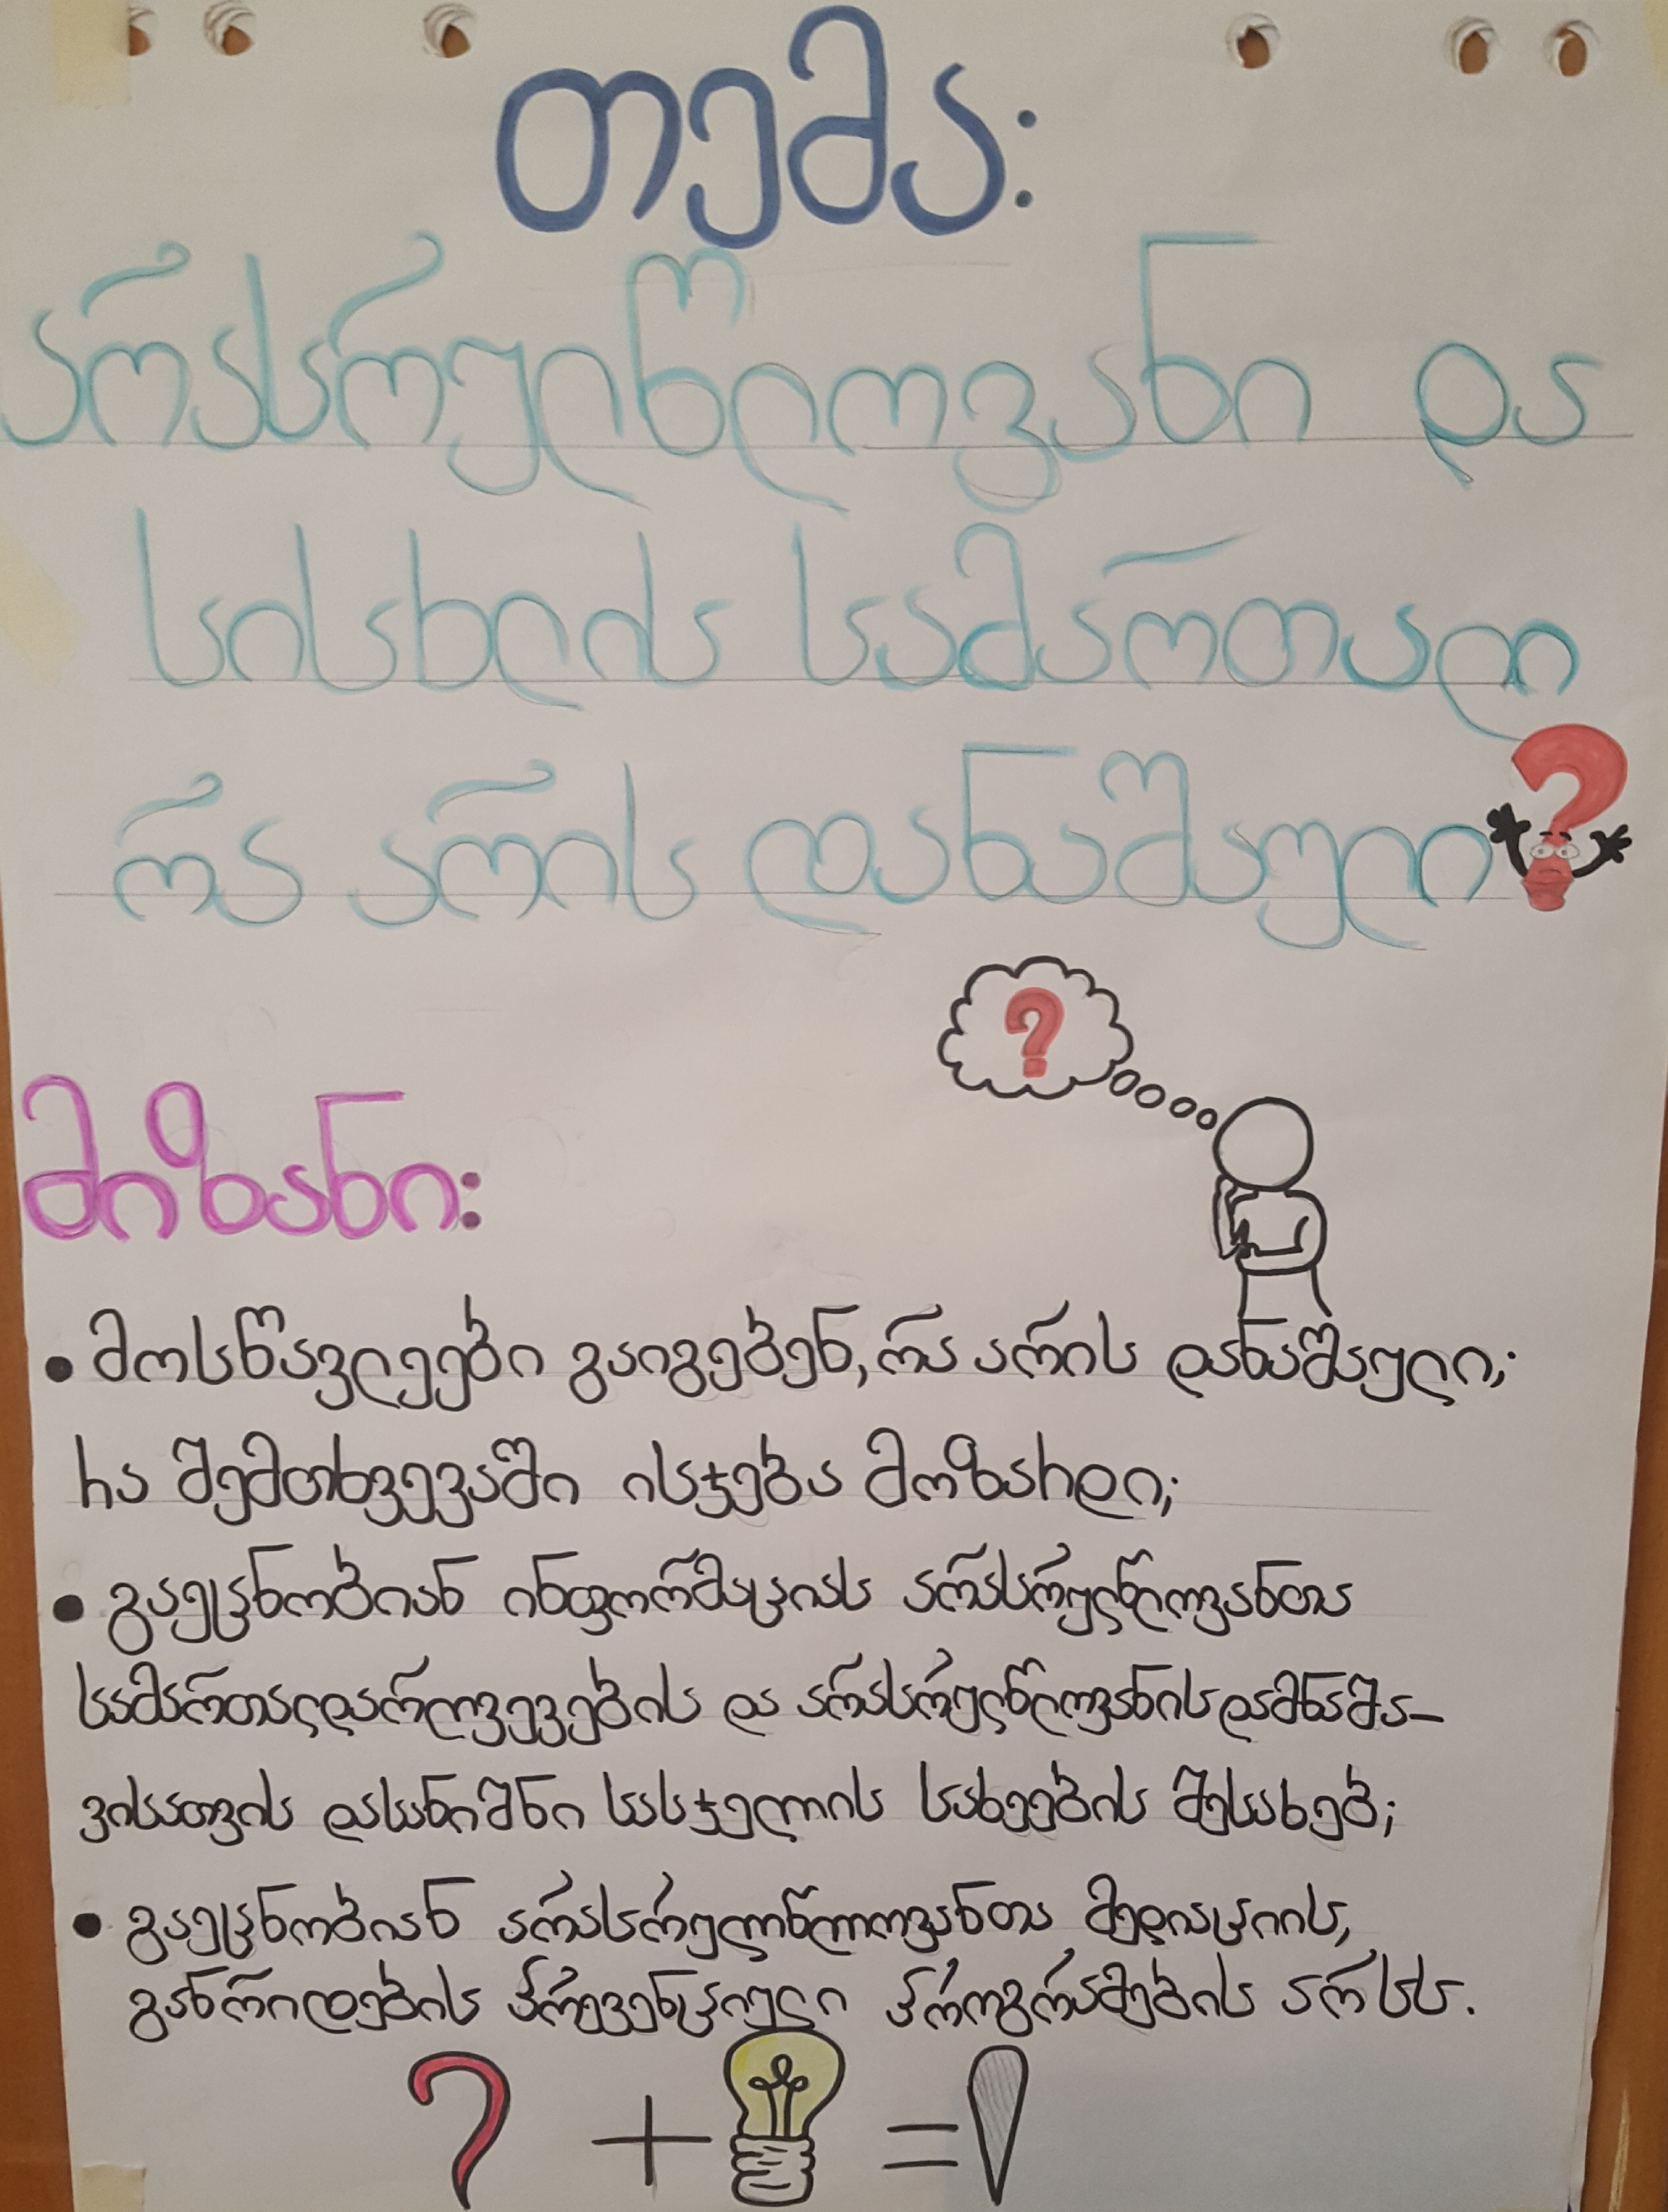 თემა:
არასრულწლოვანი და
სისხლის სამართალი
რა არის დანაშაული?
?
მიზანი:
• მოსწავლეები გაიგებენ, რა არის დანაშაული;
რა შემთხვევაში ისჯება მოზარდი;
• გაეცნობიან ინფორმაციას არასრულწლოვანთა
სამართალდარღვევების და არასრულწლოვანის დამნაშა-
ვისათვის დასანიშნი სასჯელის სახეების შესახებ;
• გაეცნობიან არასრულწლოვანთა მედიაციის,
განრიდების პრევენციული პროგრამების არსს.
? + = !